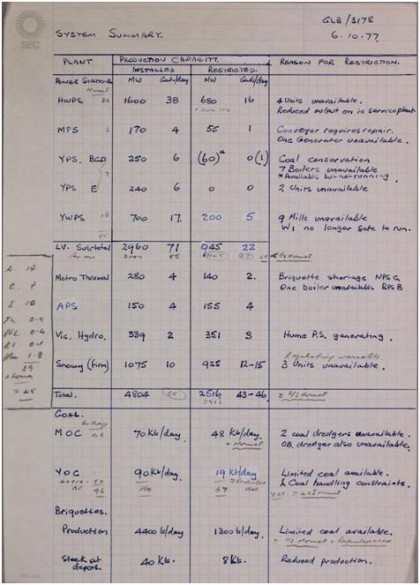 GLB/3178
SEC
SYSTEM SUMMARY. 6-10-77.
PLANT PRODUCTION CAPACITY. REASON FOR RESTRICTION.
INSTALLED RESTRICTED.
POWER STATIONS MW GWh/day MW GWh/day
HWPS 1600 38 680 16 4 Units unavailable.
Reduced output on in service plant
MPS 170 4 55 1 Conveyor requires repair.
One Generator unavailable.
YPS, BCD 250 6 (60)* 0(1) Coal conservation
7 Boilers unavailable
*Available but not running
YPS E 240 6 0 0 2 Units unavailable
YWPS 700 17. 200 5 9 Mills unavailable
W1 no longer safe to run.
LV. Subtotal 2960 71 945 22
Metro Thermal 280 4 140 2. Briquette shortage NPSC
One boiler unavailable RPSB
APS 150 4 155 4
Vic. Hydro. 339 2 351 3 Hume P.S. generating.
Snowy (firm) 1075 10 925 12-15 3 Units unavailable.
Total. 4804 2516 43-46.
COAL.
MOC 70 Kt/day 48 Kt/day. 2 coal dredgers unavailable.
OB. dredger also unavailable.
YOC 90 Kt/day. 19 Kt/day Limited coal available.
& Coal handling constraints.
Briquettes.
Production 4400 t/day 1300 t/day. Limited coal available.
Stock at depots. 40 Kt. 8 Kt. Reduced production.